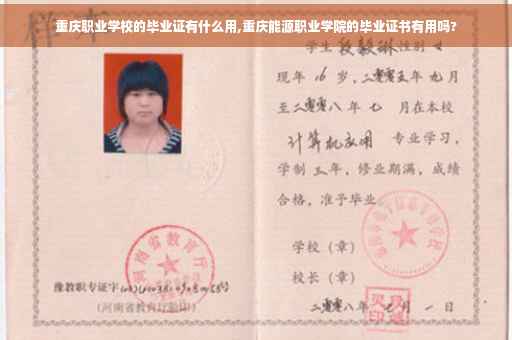 重庆职业学校的毕业证有什么用,重庆能源职业学院的毕业证书有用吗?
样本
学生 段毅琳 性别 女
现年 16 岁,二零零五年 九月
至二零零八年 七 月在本校
计算机应用 专业学习,
学制 三年,修业期满,成绩
合格,准予毕业
学校(章)
校长(章)
二零零八年 七 月 一 日
河南省教育厅
豫教职专证字
(河南省教育厅验印)